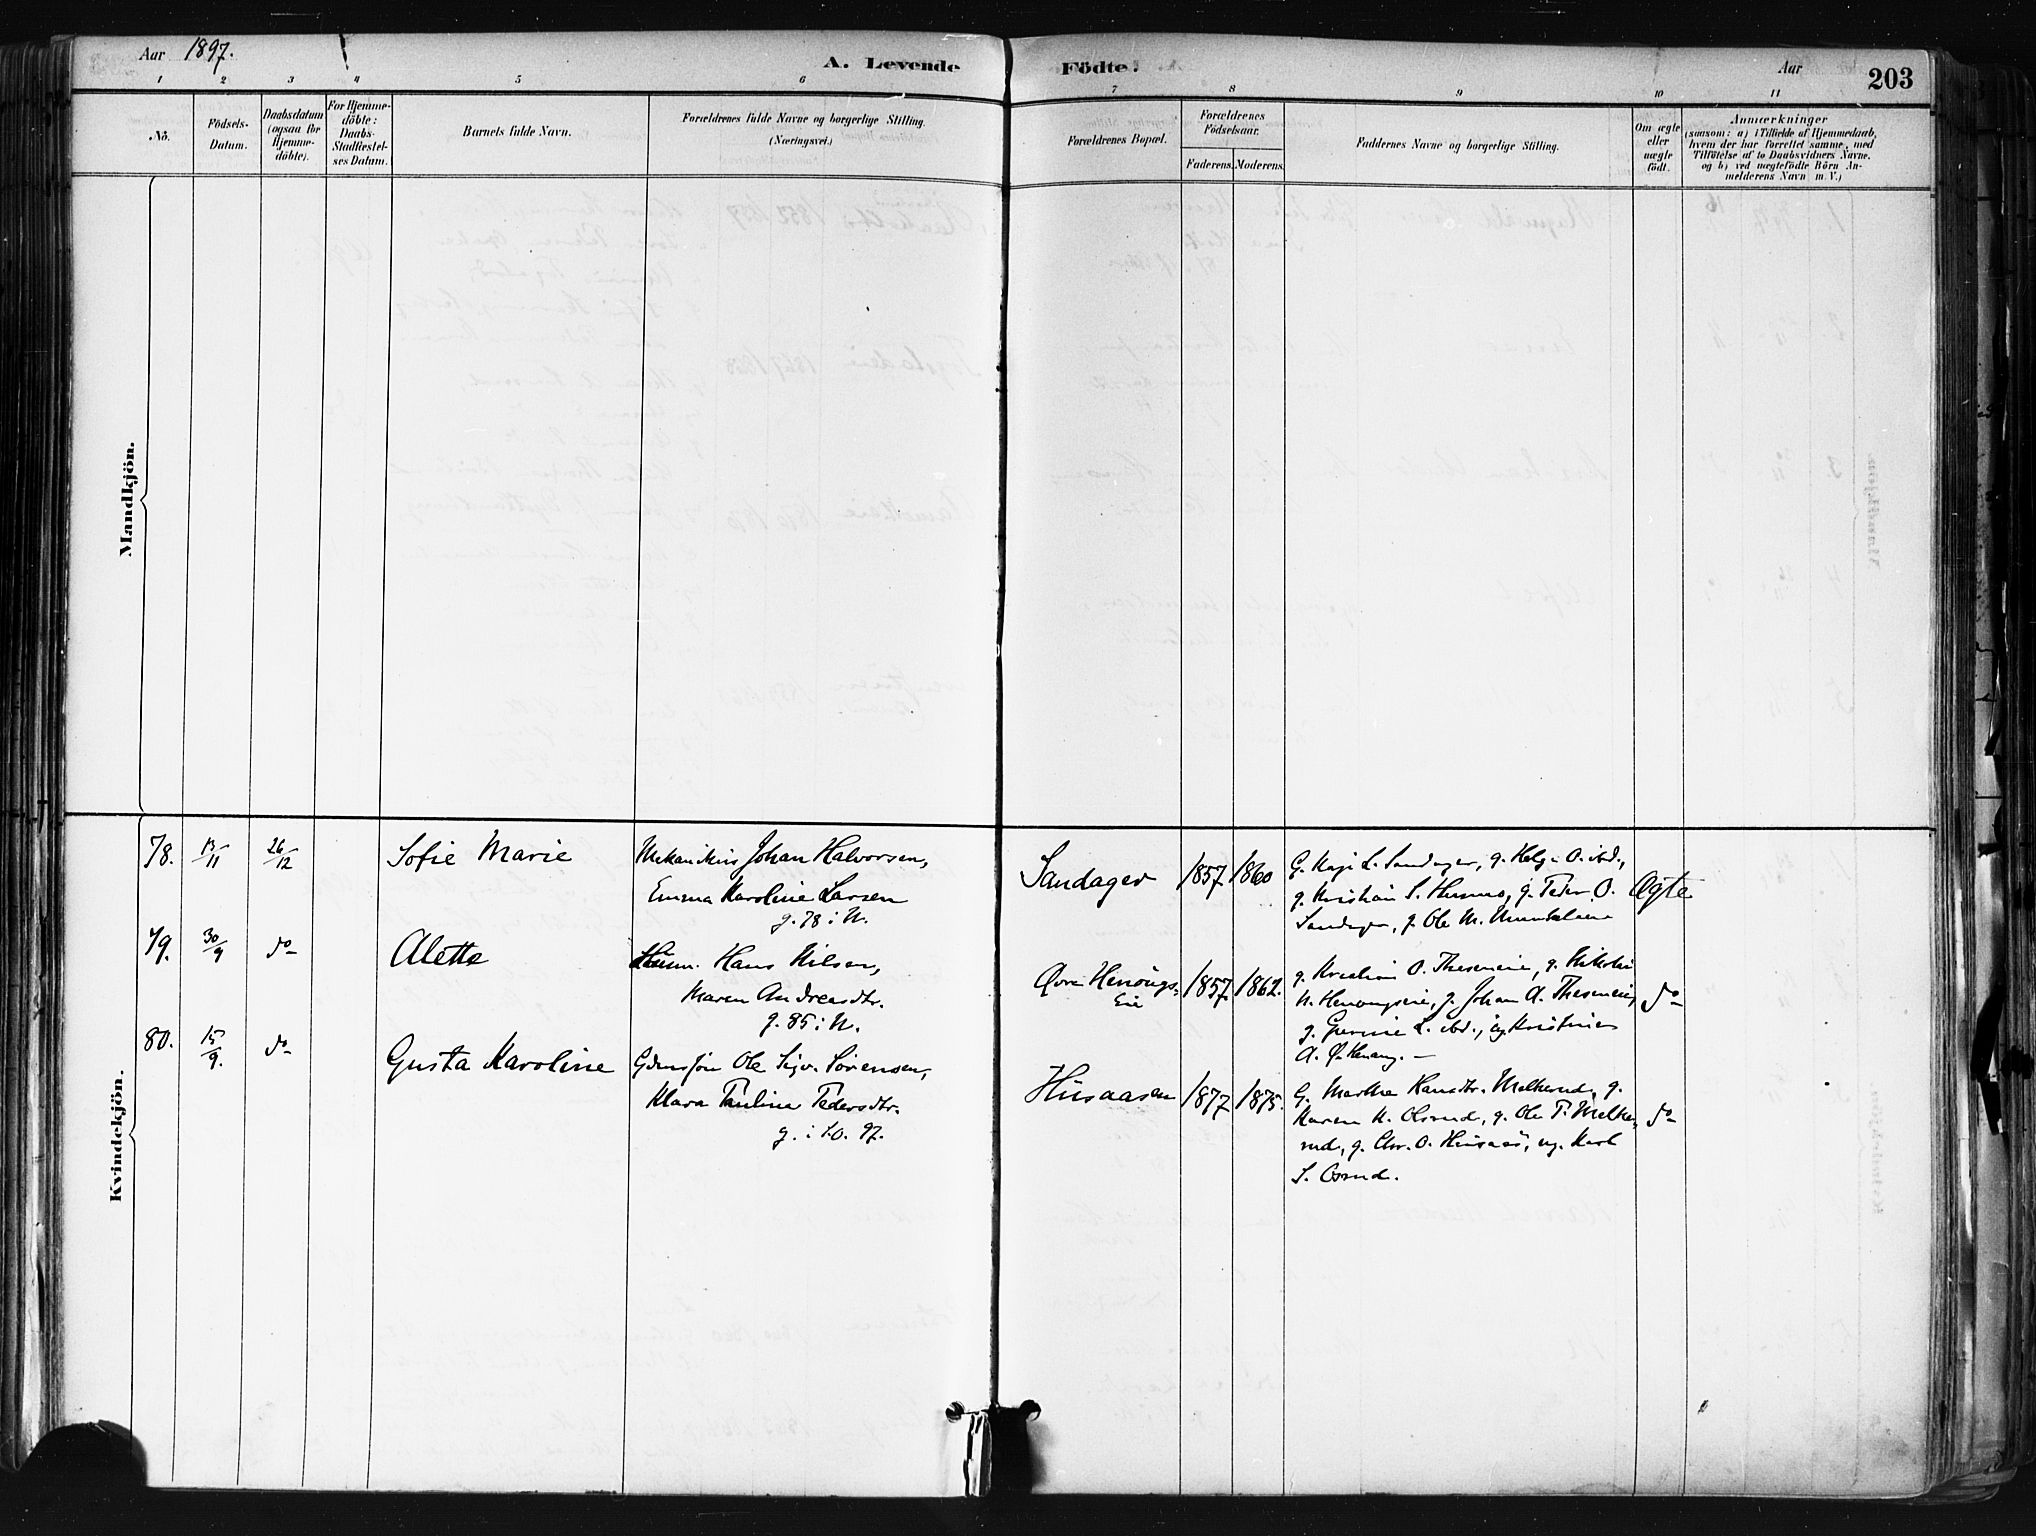 Aar 1897.
A. Levende Födte.
Aar
203
1 2 3 4 5 6 7 8 9 10 11
No.
Födsels-
Datum.
Daabsdatum
(ogsaa for
Hjemme-
döbte).
For Hjemme-
döbte:
Daabs-
Stadfestel-
ses Datum.
Barnets fulde Navn.
Forældrenes fulde Navne og borgerlige Stilling.
(Næringsvei.)
Forældrenes Bopæl.
Forældrenes
Födselsaar.
Faderens. Moderens.
Faddernes Navne og borgerlige Stilling.
Om ægte
eller
uægte
födt.
Anmærkninger
(saasom: a) i Tilfælde af Hjemmedaab,
hvem der har forrettet samme, med
Tilföielse af to Daabsvidners Navne.
og b) ved uægtefödte Börn An-
melderens Navn m. V.)
Mandkjön.
Kvindekjön.
78. 13/11 26/12 Sofie Marie
Mekanikus Johan Halvorsen,
Emma Karoline Larsen
g. 78 i N.
Sandager 1857 1860
G. Kaji L. Sandager, g. Helge O. ibd.,
g. Kristian S. Hummo, g. Peder O.
Sandager, g. Ole M.
Ægte
79. 30/9 do Alette
Husm. Hans Nilsen,
Maren Andreasdtr.
g. 85 i N.
Øvre Henongs-
Eie
1857 1862.
g. Kristian O. Theseneie, g. Nikolai
N. Henongseie, g. Johan A. Theseneie,
g. Gurine L. ibd., ug. Kristine
A. Ø. Henong. —
do
80. 15/9. do Gusta Karoline
Gdmssøn Ole Sigv. Sørensen,
Klara Paulina Pedersdtr.
g. i S.O. 97.
Husaasen 1877 1875.
G. Marthe Hansdtr. Melkerud, g.
Karen K. Olsrud, g. Ole P. Melke-
rud, g. Chr. O. Husaas, ug. Karl
S. Osrud.
do